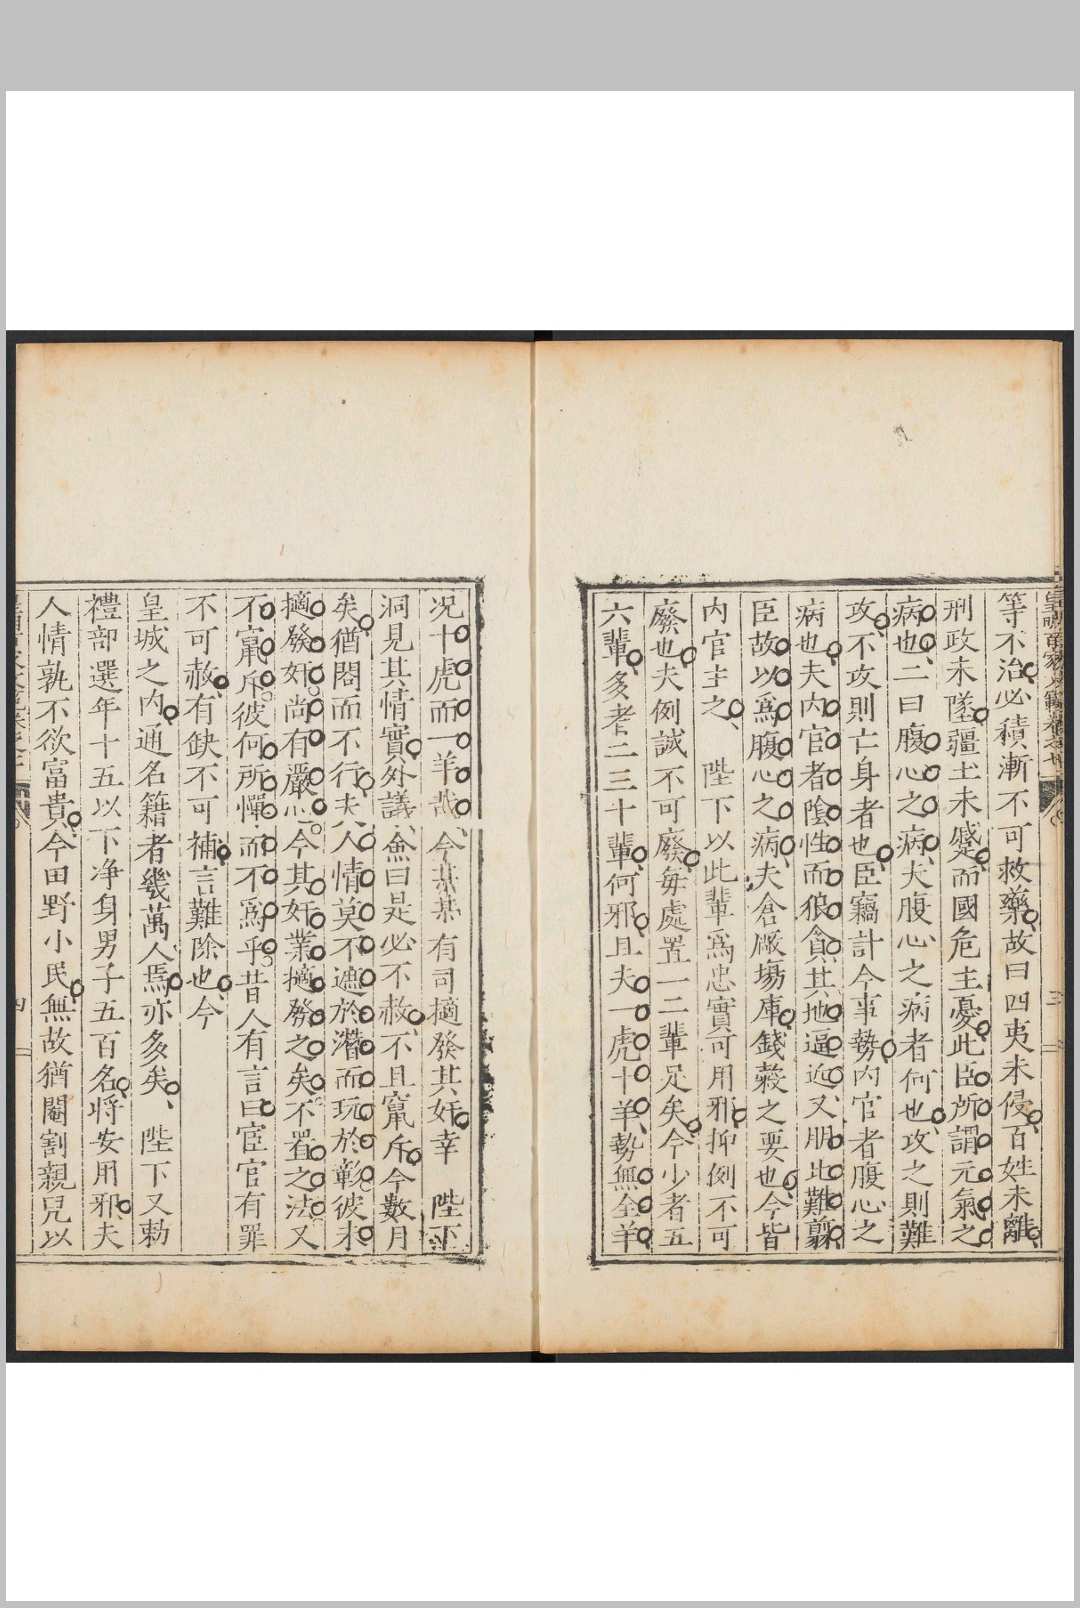 等不治必積漸不可救藥故曰四夷未侵百姓未離
刑政未墜疆土未蹙而國危主憂此臣所謂元氣之
病也二曰腹心之病夫腹心之病者何也攻之則難
攻不攻則亡身者也臣竊計今事勢內官者腹心之
病也夫內官者陰性而狼貪其地逼近又朋比難翦
臣故以爲腹心之病夫倉厰塲庫錢穀之要也今皆
內官主之 陛下以此輩爲忠實可用邪抑例不可
廢也夫例誠不可廢每處置一二輩足矣今少者五
六輩多者二三十輩何邪且夫一虎十羊勢無全羊
况十虎而一羊哉今某某有司擿發其奸幸 陛下
洞見其情實外議僉曰是必不赦不且竄斥今數月
矣猶閣而不行夫人情莫不遮於濳而玩於彰彼未
擿發奸尚有嚴心今其奸業擿發之矣不置之法又
不竄斥彼何所憚而不爲乎昔人有言曰宦官有罪
不可赦有缺不可補言難除也今
皇城之內通名籍者幾萬人焉亦多矣 陛下又勅
禮部選年十五以下净身男子五百名將安用邪夫
人情孰不欲富貴今田野小民無故猶閹割親兒以
四